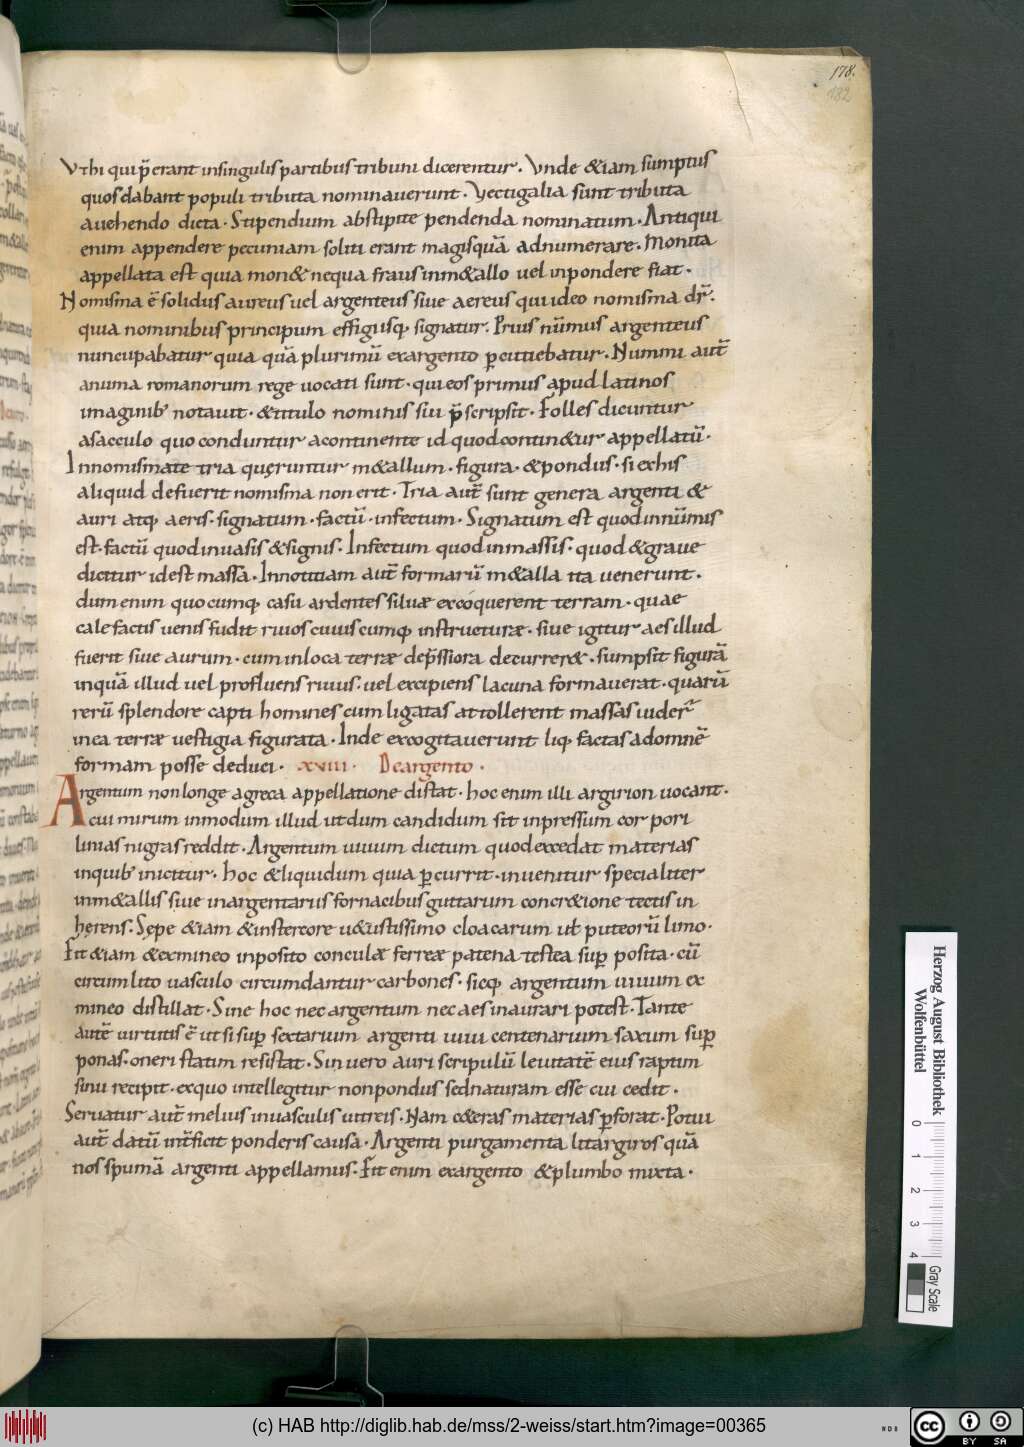 178.
182
Vthi qui p̄erant insingulis partibus tribuni dicerentur. Vnde &iam sumptus
quosdabant populi tributa nominauerunt. Vectigalia sunt tributa
auehendo dicta. Stipendium abstipite pendenda nominatum. Antiqui
enim appendere pecuniam soliti erant magisquā adnumerare. Monita
appellata est quia mon& nequa fraus inm&allo uel inpondere fiat.
Nomisma ē solidus aureus uel argenteus siue aereus qui ideo nomisma dr̄.
quia nominibus principum effigiisq; signatur. Prius nūmus argenteus
nuncupabatur quia quā plurimū exargento ꝑcutiebatur. Nummi aut̄
anuma romanorum rege uocati sunt. qui eos primus apud latinos
imaginib; notauit. &titulo nominis sui p̄scripsit. Folles dicuntur
asacculo quo conduntur acontinente id quod contin&ur appellatū.
Innomismate tria quęruntur m&allum. figura. &pondus. si exhis
aliquid defuerit nomisma non erit. Tria aut̄ sunt genera argenti &
auri atq; aeris. signatum. factū. infectum. Signatum est quod innūmis
est. factū quod inuasis &signis. Infectum quod inmassis. quod &graue
dicitur idest massa. Innotitiam aut̄ formarū m&alla ita uenerunt.
dum enim quo cumq; casu ardentes siluæ excoquerent terram. quae
calefactis uenis fudit riuos cuiuscumq; instructuræ. siue igitur aes illud
fuerit siue aurum. cum inloca terræ dep̄ssiora decurrer&. sumpsit figurā
inquā illud uel profluens riuus. uel excipiens lacuna formauerat. quarū
rerū splendore capti homines cum ligatas attollerent massas uider̄
inea terræ uestigia figurata. Inde excogitauerunt liq; factas adomnē
formam posse deduci. xviiii. De argento.
Argentum non longe agreca appellatione distat. hoc enim illi argirion uocant.
cui mirum inmodum illud ut dum candidum sit inpressum cor pori
linias nigras reddit. Argentum uiuum dictum quod excedat materias
inquib; inicitur. hoc &liquidum quia ꝑcurrit. inuenitur specialiter
inm&allis siue inargentariis fornacibus guttarum concr&ione tectis in
hęrens. Sępe &iam &instercore u&ustissimo cloacarum ut puteorū limo.
Fit &iam &exmineo inposito conculæ ferreæ patena testea suꝑ posita. cū
circumlito uasculo circumdantur carbones. sicq; argentum uiuum ex
mineo distillat. Sine hoc nec argentum nec aes inaurari potest. Tante
autē uirtutis ē ut si suꝑ sextarium argenti uiui centenarium saxum suꝑ
ponas. oneri statim resistat. Sin uero auri scripulū leuitatē eius raptim
sinu recipit. exquo intellegitur non pondus sed naturam esse cui cedit.
Seruatur aut̄ melius inuasculis uitreis. Nam c&eras materias ꝑforat. Potui
aut̄ datū int̄ficit ponderis causa. Argenti purgamenta litargiros quā
nos spumā argenti appellamus. Fit enim exargento &plumbo mixta.
Herzog August Bibliothek
Wolfenbüttel
0 1 2 3 4
Gray Scale
(c) HAB http://diglib.hab.de/mss/2-weiss/start.htm?image=00365
cc BY SA